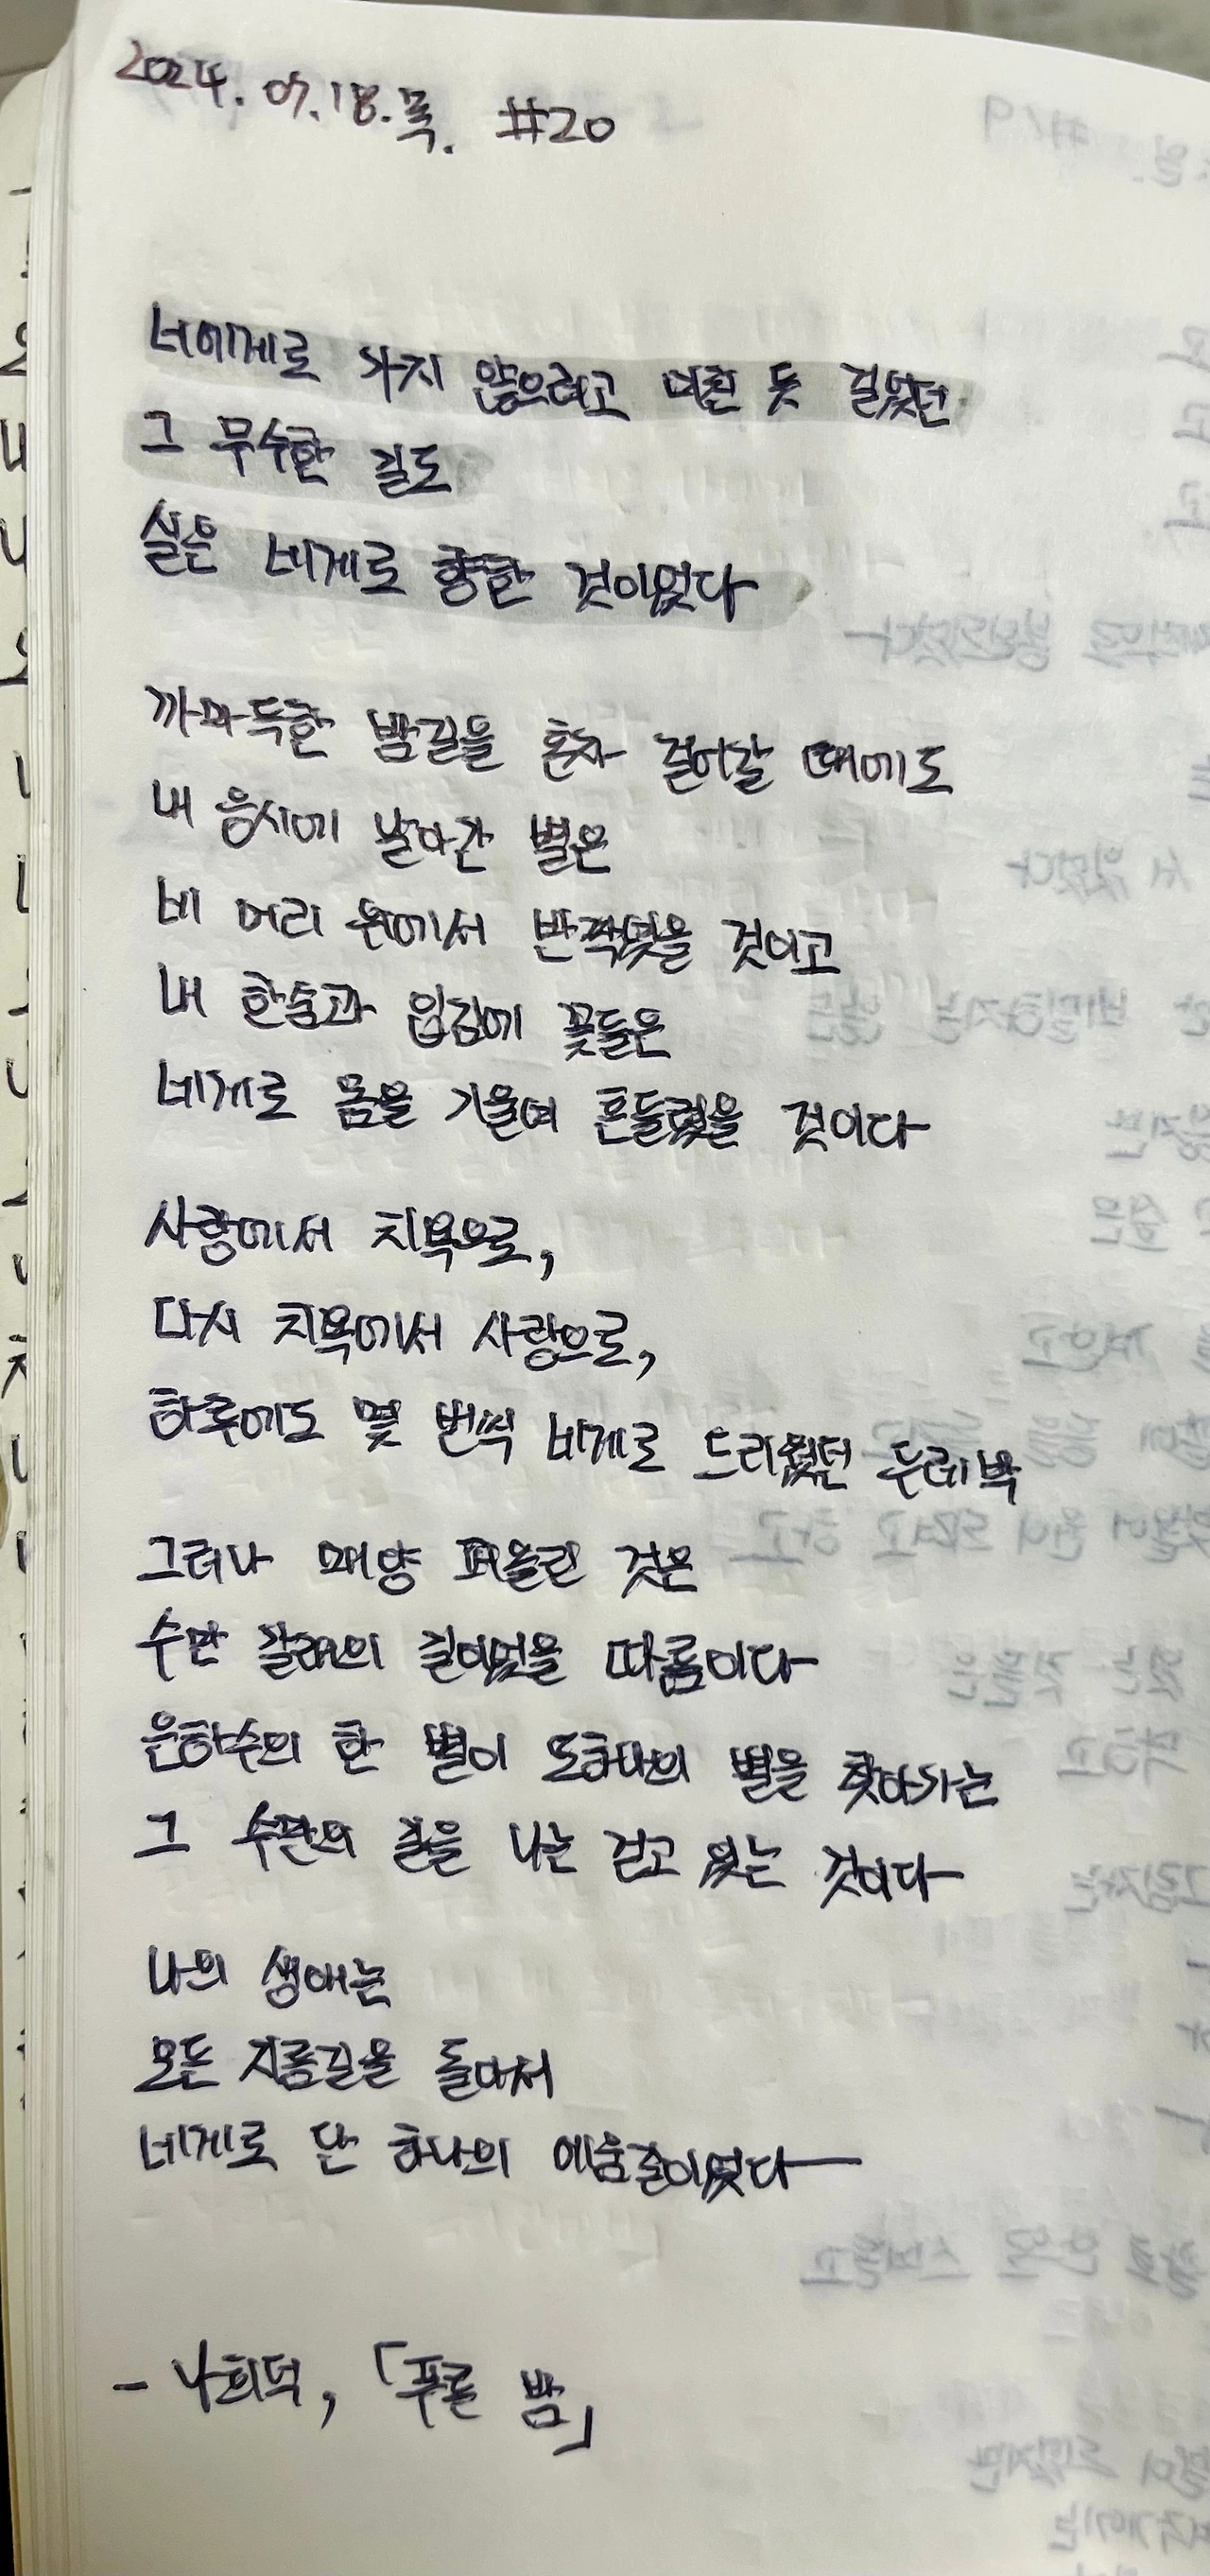 2024. 07. 18. 목. #20
너에게로 가지 않으려고 미친 듯 걸었던
그 무수한 길도
실은 네게로 향한 것이었다
까마득한 밤길을 혼자 걸어갈 때에도
내 응시에 날아간 별은
네 머리 위에서 반짝였을 것이고
내 한숨과 입김에 꽃들은
네게로 몸을 기울여 흔들렸을 것이다
사랑에서 치욕으로,
다시 치욕에서 사랑으로,
하루에도 몇 번씩 네게로 드리웠던 두레박
그러나 매양 퍼올린 것은
수만 갈래의 길이었을 따름이다
은하수의 한 별이 또하나의 별을 찾아가는
그 수만의 길을 나는 걷고 있는 것이다
나의 생애는
모든 지름길을 돌아서
네게로 난 단 하나의 에움길이었다
- 나희덕, 「푸른 밤」